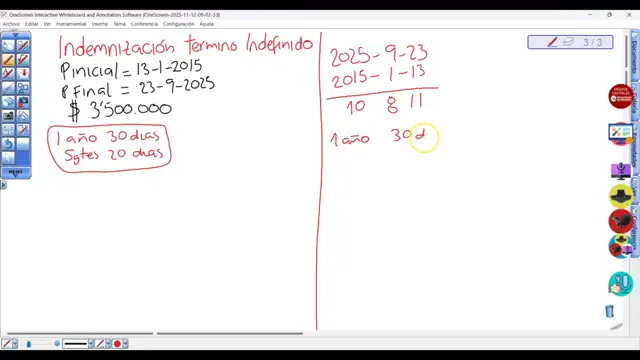 OneScreen Interactive Whiteboard and Annotation Software (OneScreen-2025-11-12-09-02-33)
Archivo Editar Ver Insertar Tema Herramientas Conferencia Configuración Ayuda
Indemnización Termino Indefinido
P inicial = 13-1-2015
P Final = 23-9-2025
$ 3'500.000
1 año 30 dias
Sgtes 20 dias
2025-9-23
2015-1-13
10 8 11
1 año 30 d
3 / 3